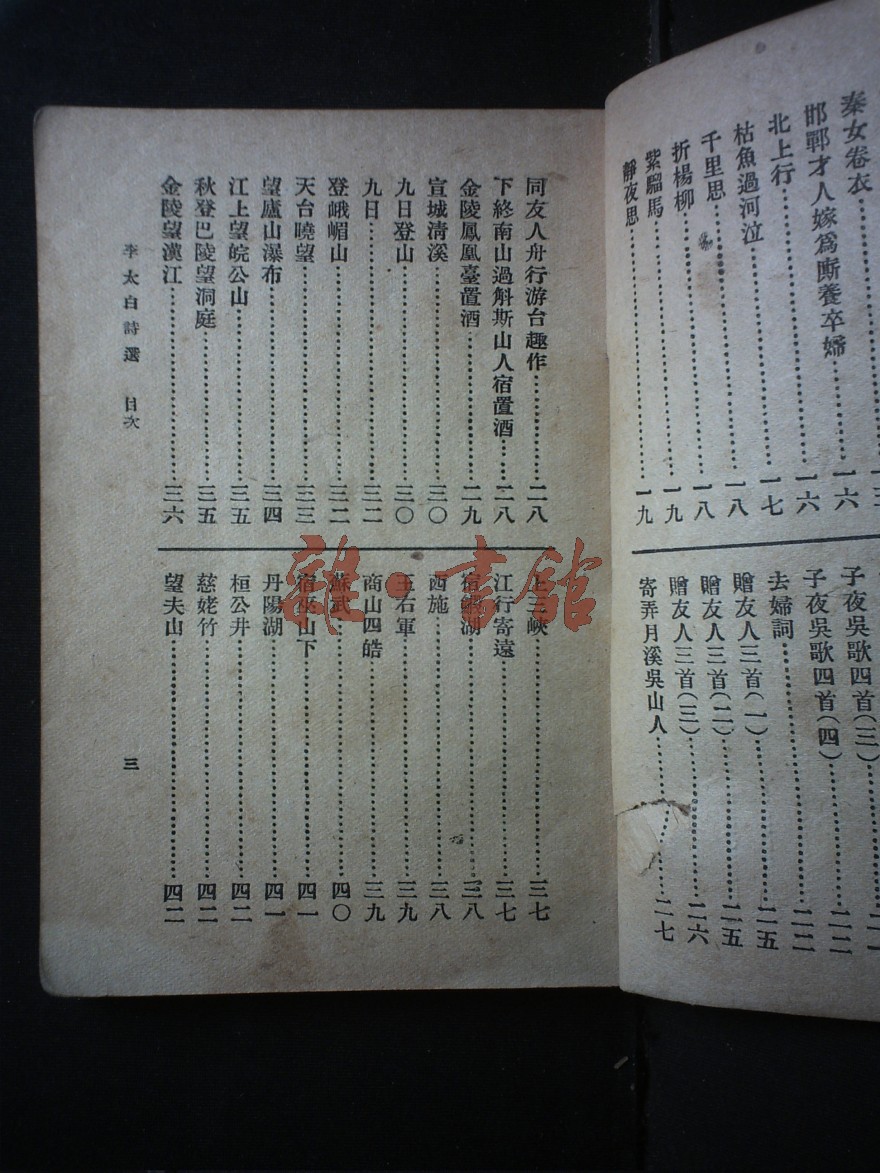 秦女卷衣
邯鄲才人嫁爲厮養卒婦……一六
北上行……一七
枯魚過河泣……一六
千里思……一八
折楊柳……一八
紫騮馬……一九
靜夜思……一九
子夜吳歌四首(三)
子夜吳歌四首(四)……二二
去婦詞……二二
贈友人三首(一)……二五
贈友人三首(二)……二五
贈友人三首(三)……二六
寄弄月溪吳山人……二七
同友人舟行游台趣作……二八
下終南山過斛斯山人宿置酒……二八
金陵鳳凰臺置酒……二九
宣城清溪……三〇
九日登山……三〇
九日……三二
登峨嵋山……三二
天台曉望……三三
望廬山瀑布……三四
江上望皖公山……三五
秋登巴陵望洞庭……三五
金陵望漢江……三六
上三峽……三七
江行寄遠……三七
宿鰕湖……三八
西施……三八
王右軍……三九
商山四皓……三九
蘇武……四〇
宿巫山下……四一
丹陽湖……四一
桓公井……四二
慈姥竹……四二
望夫山……四二
李太白詩選 目次
三
雜·書館